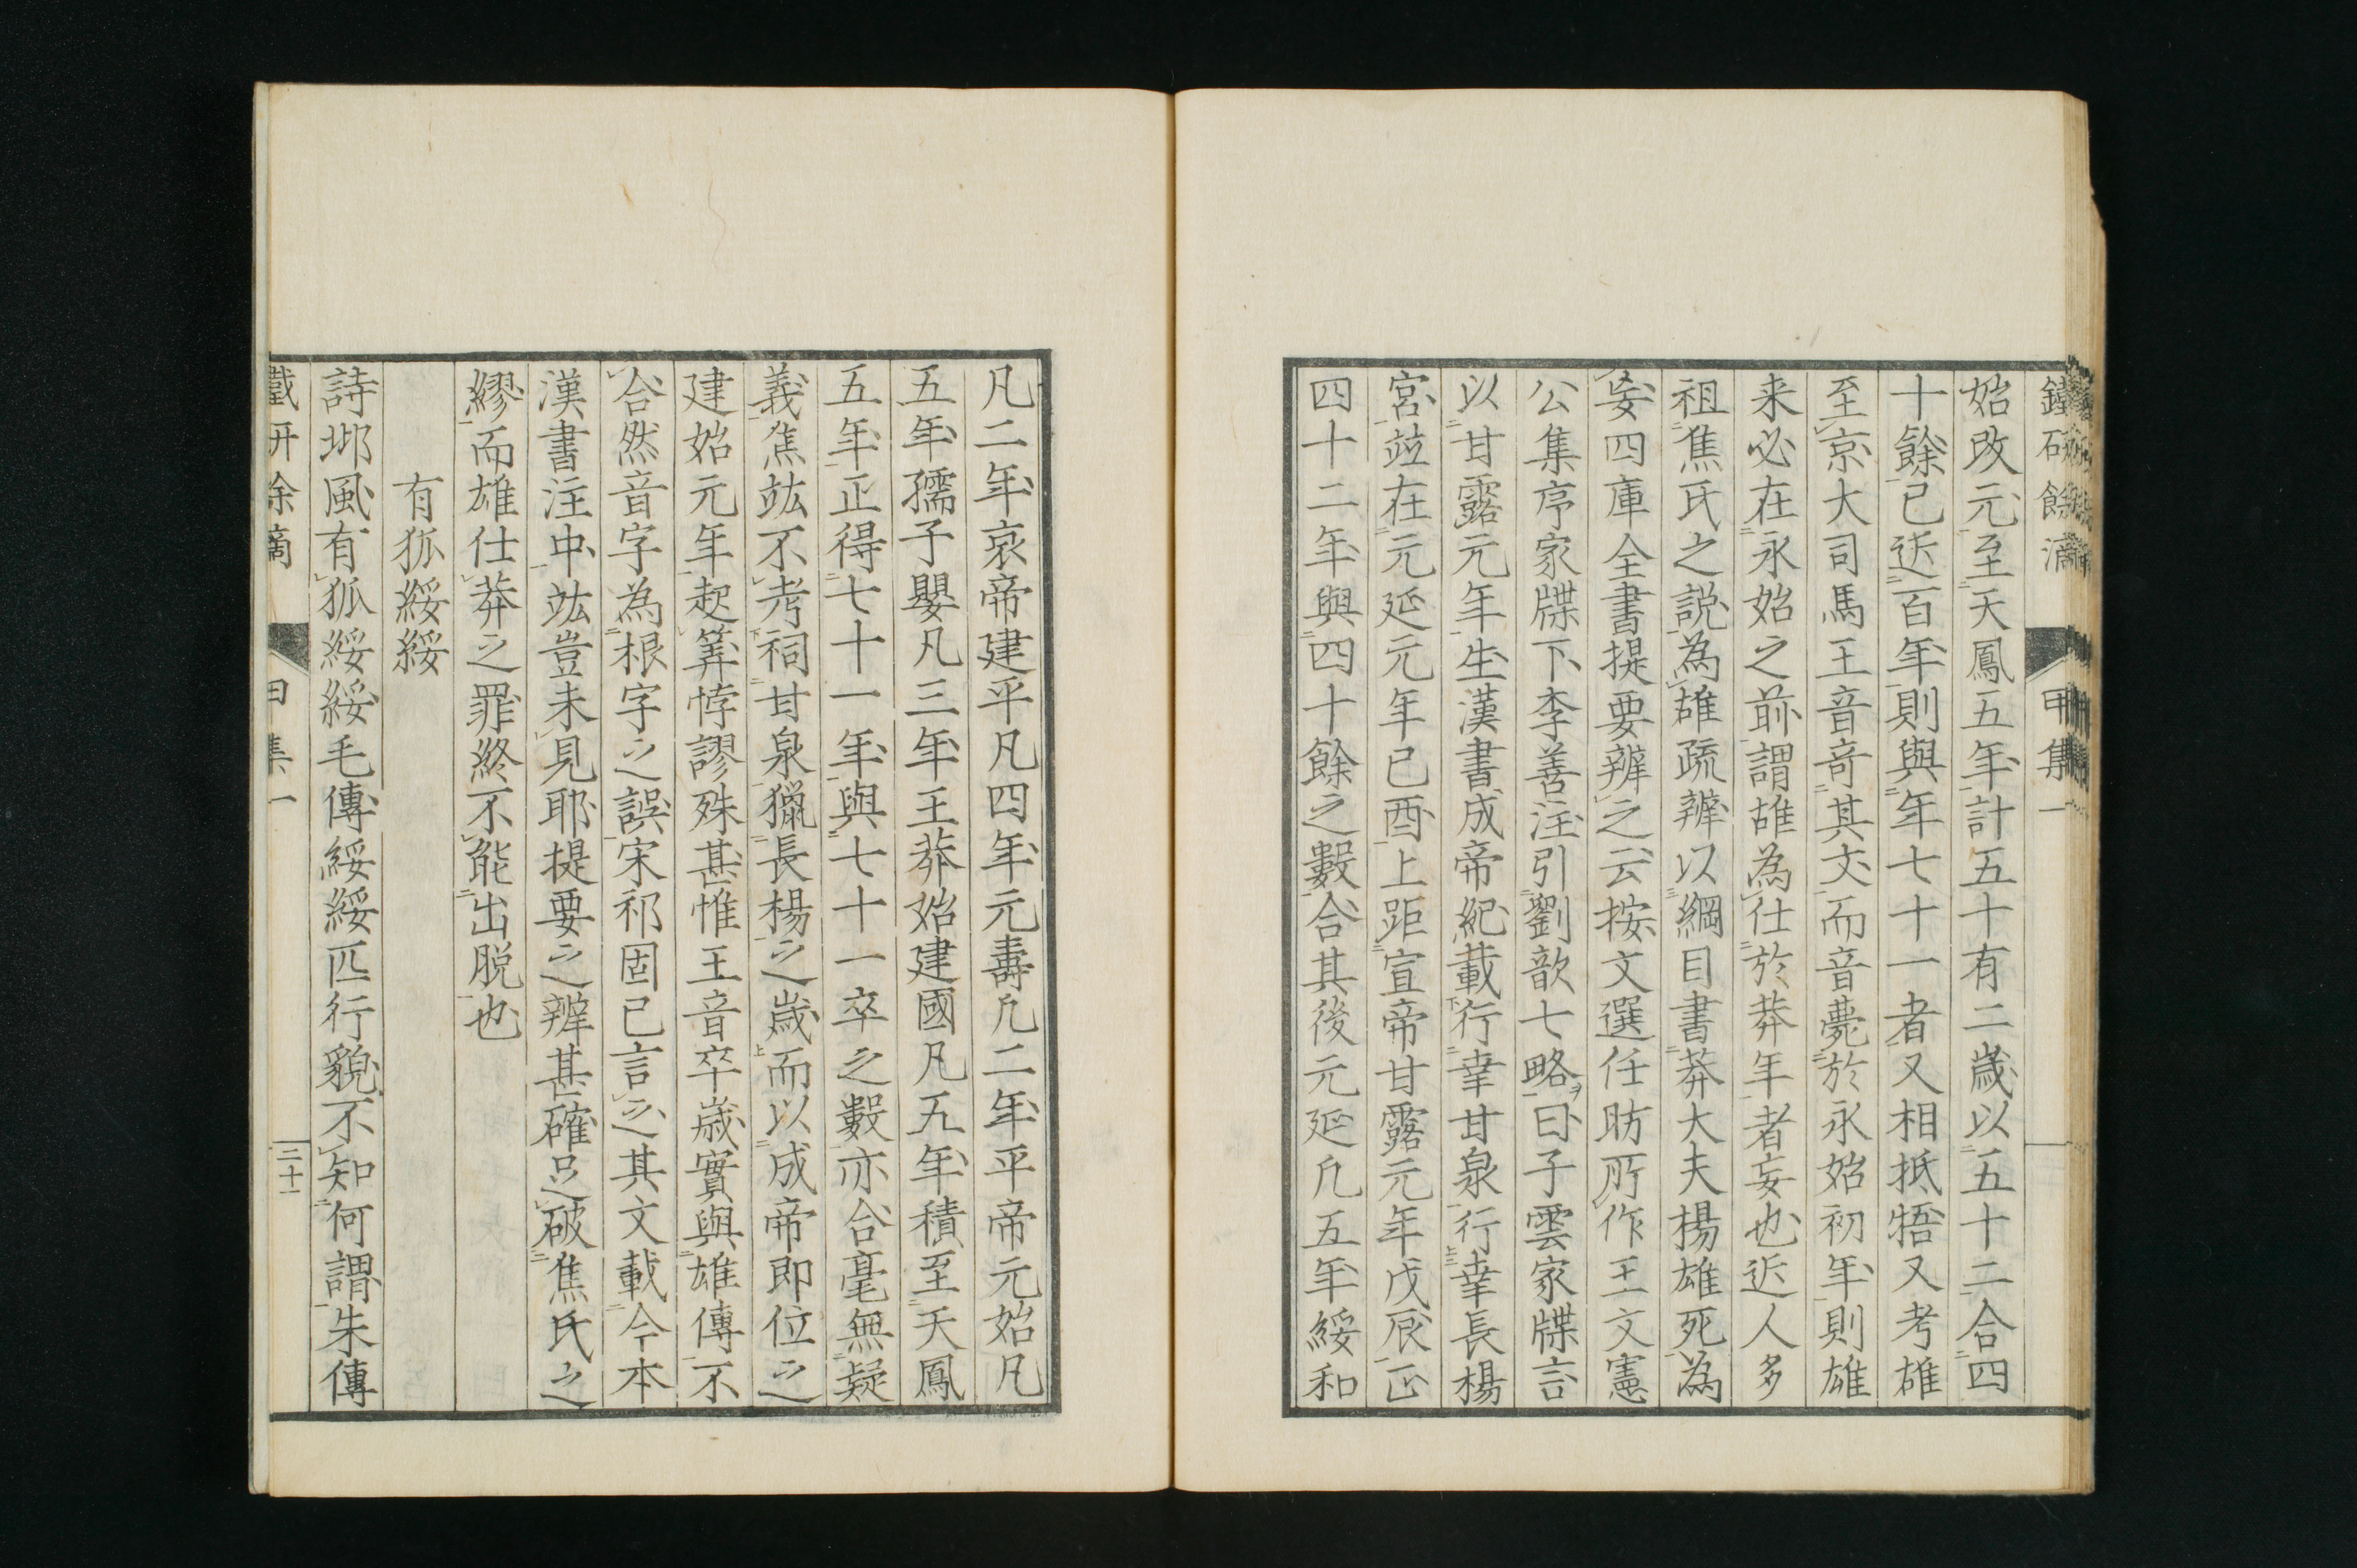 鐵研餘滴 甲集一
始改元至天鳳五年計五十有二歲以五十二合四
十餘已近百年則與年七十一者又相抵牾又考雄
至京大司馬王音奇其文而音薨於永始初年則雄
来必在永始之前謂雄為仕於莽年者妄也近人多
祖焦氏之説為雄疏辨以綱目書莽大夫楊雄死為
妄四庫全書提要辨之云按文選任昉所作王文憲
公集序家牒下李善注引劉歆七略曰子雲家牒言
以甘露元年生漢書成帝紀載行幸甘泉行幸長楊
宮竝在元延元年己酉上距宣帝甘露元年戊辰正
四十二年與四十餘之數合其後元延凡五年綏和
凡二年哀帝建平凡四年元壽凡二年平帝元始凡
五年孺子嬰凡三年王莽始建國凡五年積至天鳳
五年正得七十一年與七十一卒之數亦合毫無疑
義焦竑不考祠甘泉獵長楊之歲而以成帝即位之
建始元年起筭悖謬殊甚惟王音卒歲實與雄傳不
合然音字為根字之誤宋祁固已言之其文載今本
漢書注中竑豈未見耶提要之辨甚確只破焦氏之
繆而雄仕莽之罪終不能出脱也
有狐綏綏
詩邶風有狐綏綏毛傳綏綏匹行貌不知何謂朱傳
鐵研餘滴 甲集一 三十一